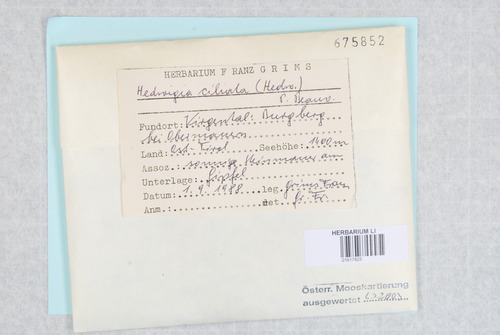 675852
HERBARIUM FRANZ GRIMS
Hedwigia ciliata (Hedw.)
P. Beauv.
Fundort: Virgental: Burgberg
bei Obermauern
Land: Ost-Tirol Seehöhe: 1400m
Assoz.: sonnige Steinmauer am
Unterlage: Gipfel
Datum: 1.9.1988 leg. Grims Franz
Anm.: det. Gr. Fr.
HERBARIUM LI
Österr. Mooskartierung
ausgewertet